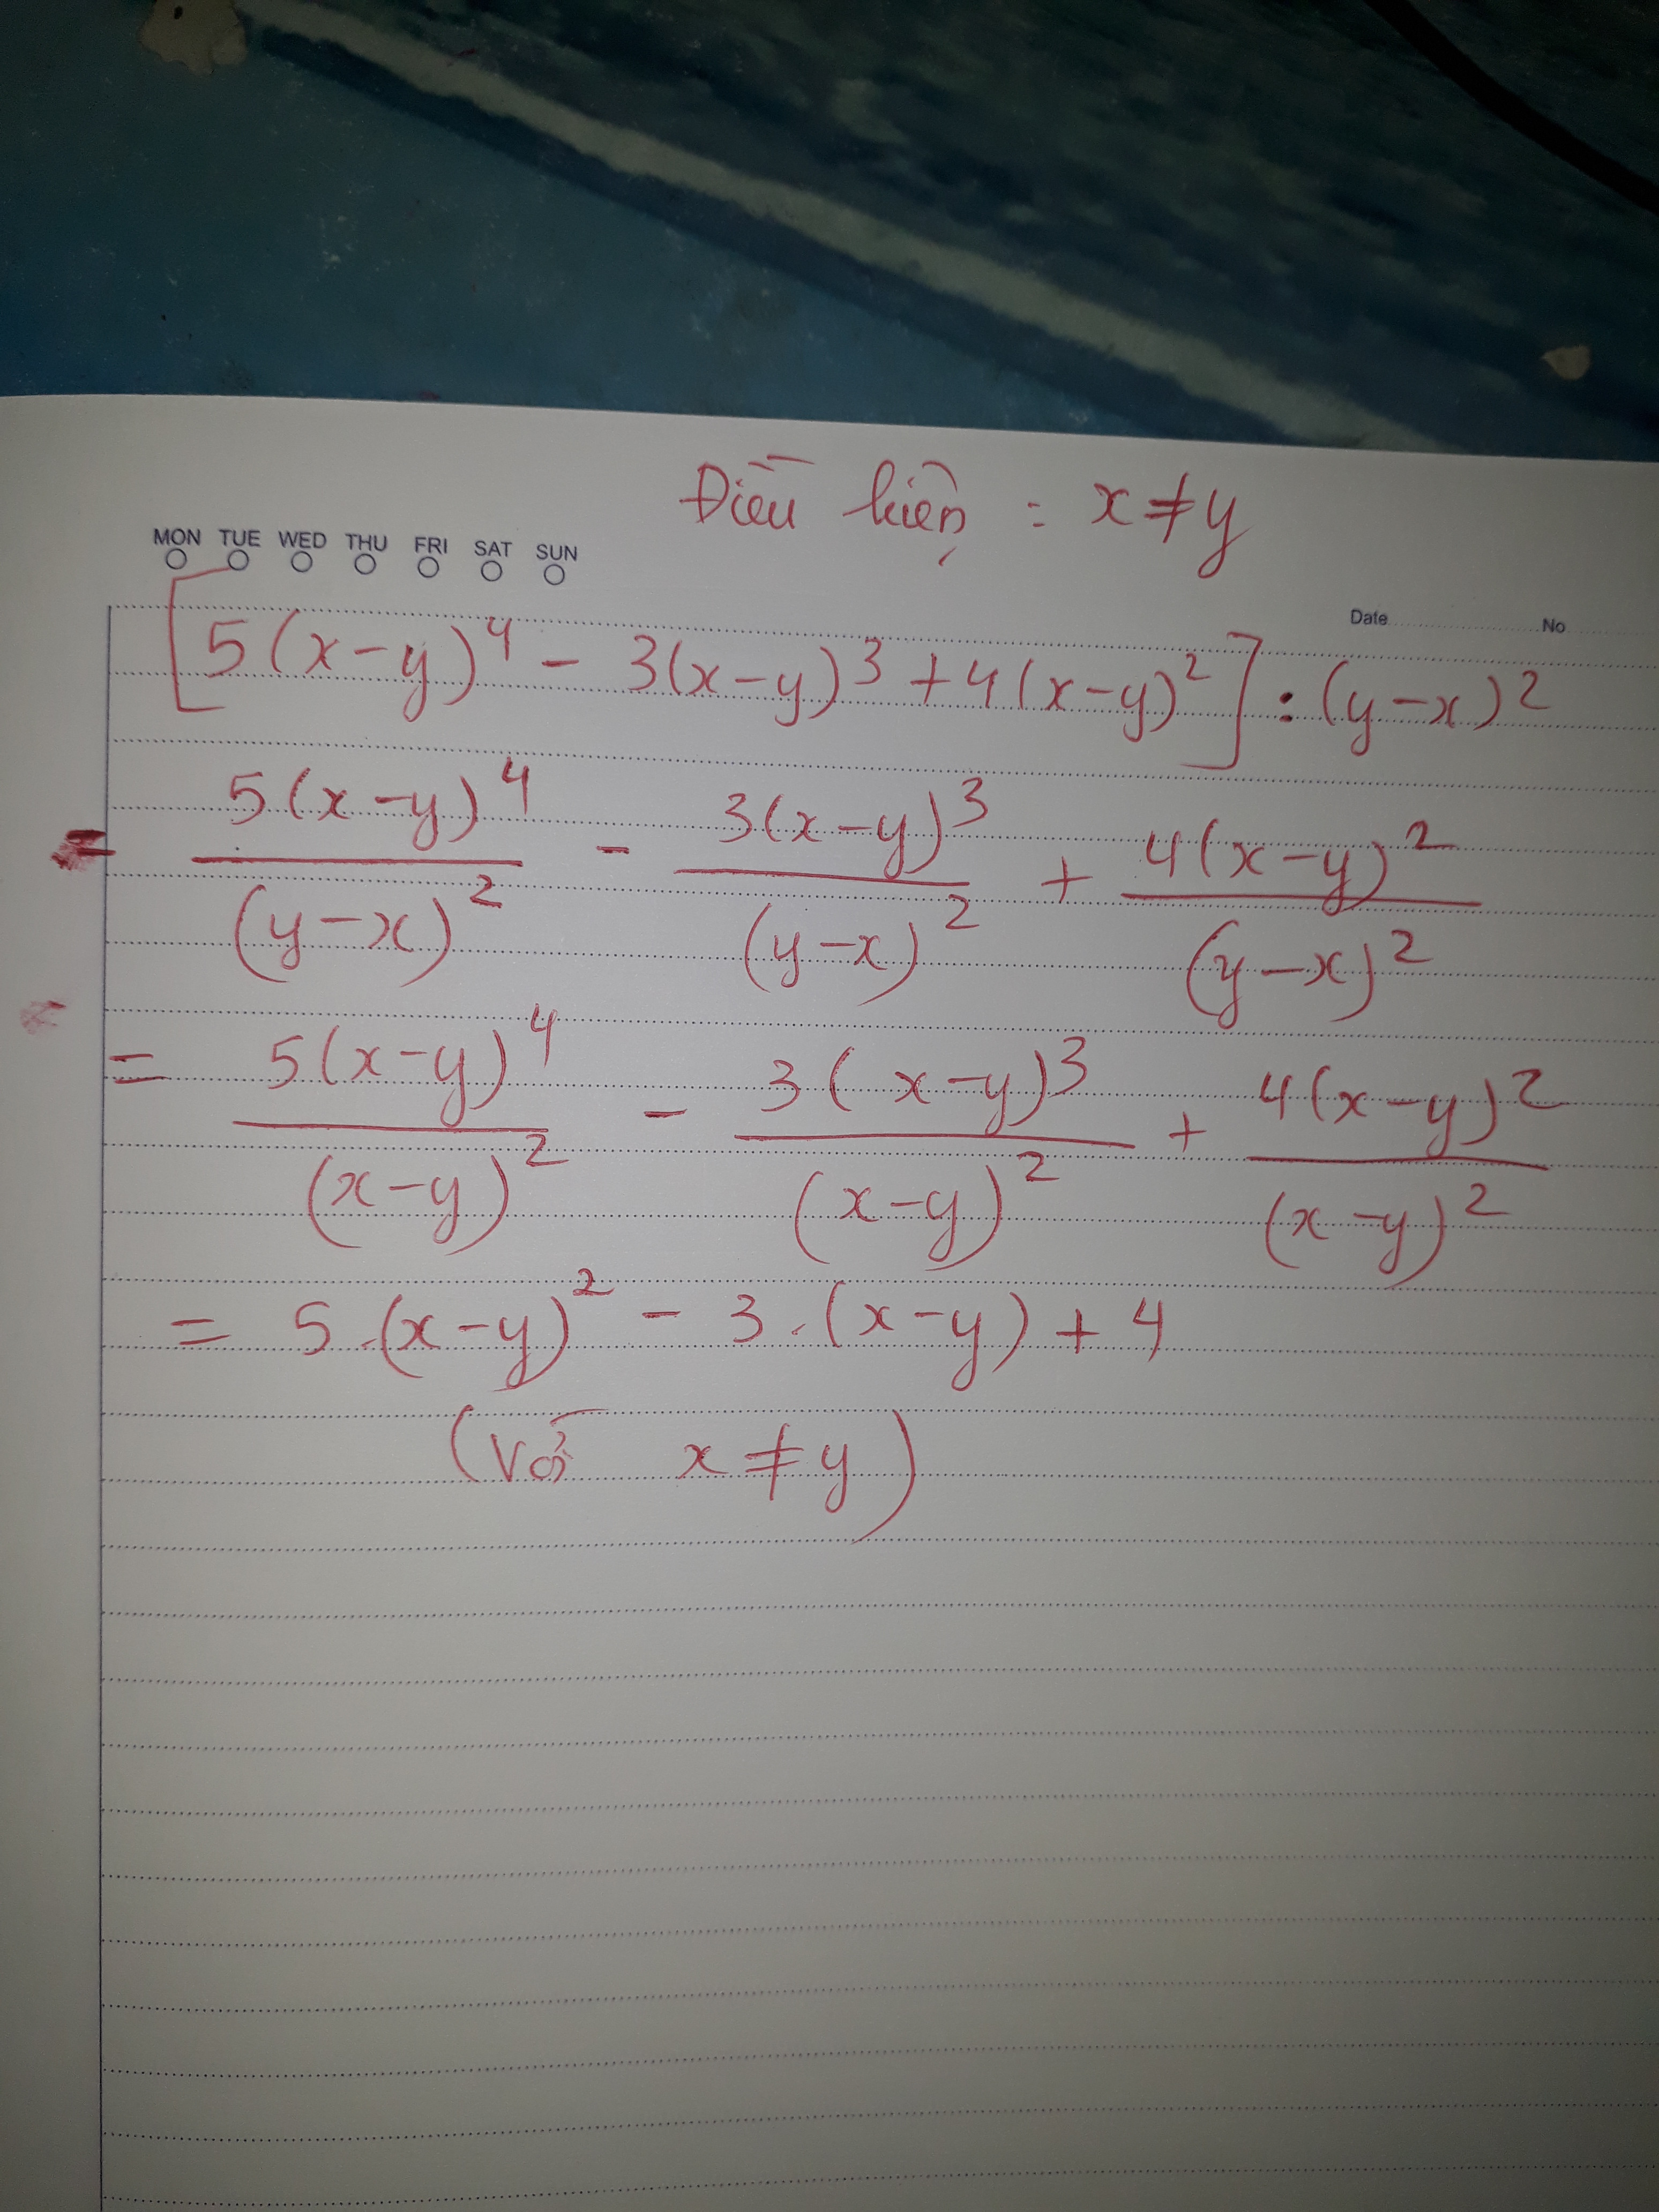 Điều kiện : x ≠ y
MON TUE WED THU FRI SAT SUN
Date No
[5(x-y)⁴ - 3(x-y)³ + 4(x-y)²] : (y-x)²
= 5(x-y)⁴/(y-x)² - 3(x-y)³/(y-x)² + 4(x-y)²/(y-x)²
= 5(x-y)⁴/(x-y)² - 3(x-y)³/(x-y)² + 4(x-y)²/(x-y)²
= 5.(x-y)² - 3.(x-y) + 4
(Với x ≠ y)